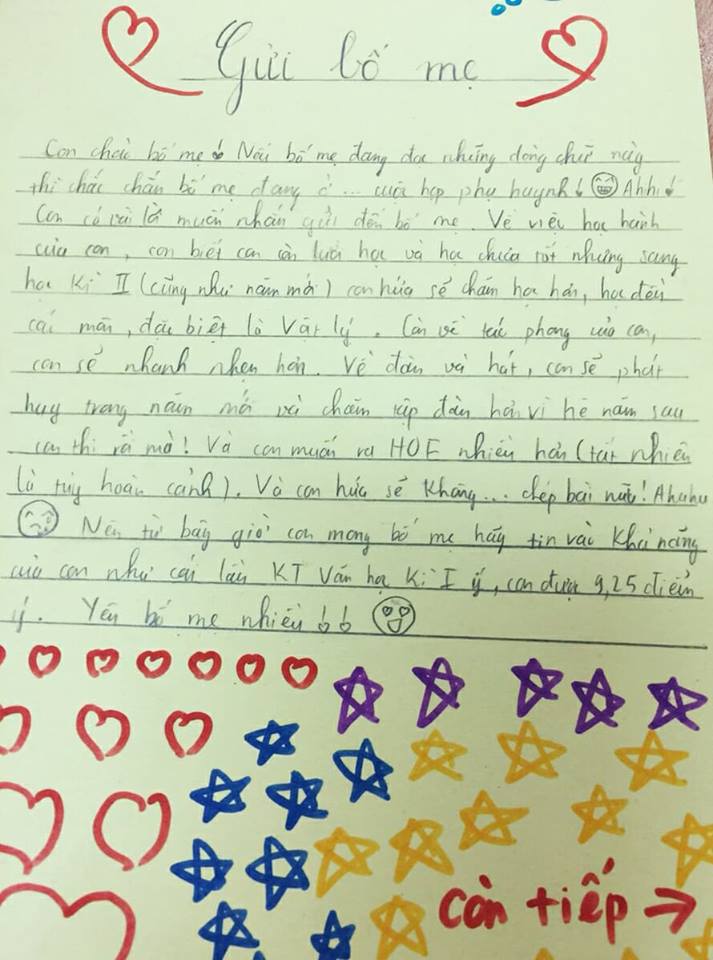 Gửi bố mẹ
Con chào bố mẹ! Nếu bố mẹ đang đọc những dòng chữ này
thì chắc chắn bố mẹ đang ở... cuộc họp phụ huynh! Ahhi!
Con có vài lời muốn nhắn gửi đến bố mẹ. Về việc học hành
của con, con biết con còn lười học và học chưa tốt nhưng sang
học kì II (cũng như năm mới) con hứa sẽ chăm học hơn, học đều
các môn, đặc biệt là Vật lý. Còn về tác phong của con,
con sẽ nhanh nhẹn hơn. Về đàn và hát, con sẽ phát
huy trong năm mới và chăm tập đàn hơn vì hè năm sau
con thi rồi mà! Và con muốn ra HOE nhiều hơn (tất nhiên
là tùy hoàn cảnh). Và con hứa sẽ không... chép bài nữa! Ahuhu
Nên từ bây giờ con mong bố mẹ hãy tin vào khả năng
của con như cái lần KT Văn học kì I ý, con được 9,25 điểm
ý. Yêu bố mẹ nhiều!!
còn tiếp →